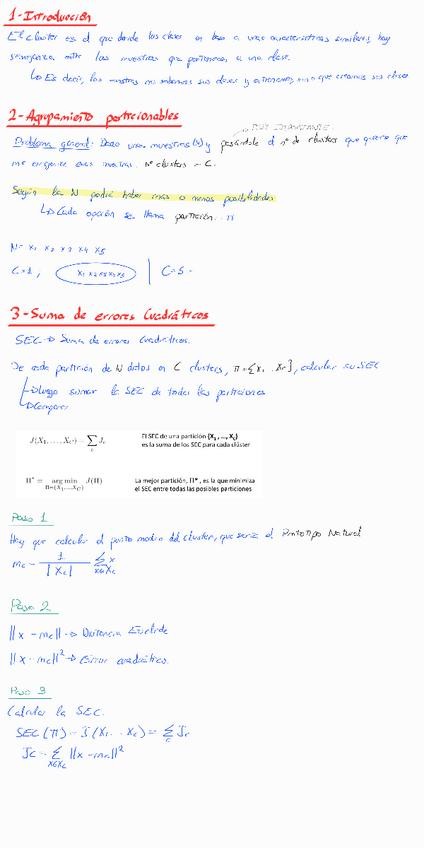 1-Introducción
El cluster es el que divide las clases en base a unas características similares, hay
semejanza entre las muestras que pertenecen a una clase.
↳ Es decir, las muestras no sabemos sus clases y entrenamos, sino que creamos sus clases
2-Agrupamiento particionables
MUY IMPORTANTE
Problema general: Dado unas muestras (N) y pasándole el nº de clusters que quiero que
me encuentre esas muestras. Nº clusters = C.
Según la N podrá haber más o menos posibilidades
↳ Cada opción se llama partición. Π
N = x1 x2 x3 x4 x5
C = 1, x1 x2 x3 x4 x5 | C = 5 -
3-Suma de errores Cuadráticos
SEC → Suma de errores cuadráticos.
De cada partición de N datos en C clusters, Π = {X1 .. Xc}, calcular su SEC
→ Luego sumar la SEC de todas las particiones
→ Comparar
J(X1, ..., XC) = ∑c Jc El SEC de una partición {X1, ..., XC}
es la suma de los SEC para cada clúster
Π* = arg min J(Π) La mejor partición, Π*, es la que minimiza
Π={X1,...,XC} el SEC entre todas las posibles particiones
Paso 1
Hay que calcular el punto medio del cluster, que sería el Prototipo Natural
mc = 1 / |Xc| ∑ x∈Xc x
Paso 2
||x - mc|| → Distancia Euclídea
||x - mc||² → Error cuadrático.
Paso 3
Calcular la SEC.
SEC(Π) = J(X1 .. Xc) = ∑c Jc
Jc = ∑ x∈Xc ||x - mc||²